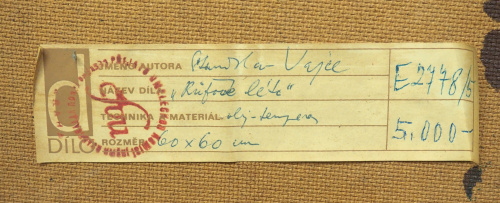 JMÉNO AUTORA Stanislav Vajce E2778/5
NÁZEV DÍLA „Růžové léto"
TECHNIKA MATERIÁL olej-tempera 5.000-
DÍLO ROZMĚR 60x60 cm